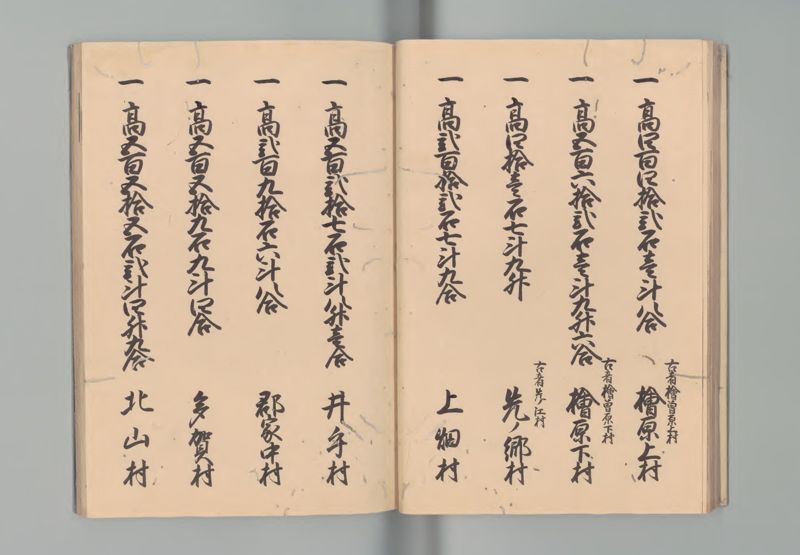 一 高四百四拾弐石壱斗八合 古者檜曽原上村 檜原上村
一 高五百六拾弐石壱斗九升六合 古者檜曽原下村 檜原下村
一 高四拾壱石七斗九升 古者 江村 先ノ郷村
一 高弐百拾弐石七斗九合 上畑村
一 高五百弐拾七石弐斗八升壱合 井手村
一 高弐百九拾石六斗八合 郡家中村
一 高五百五拾九石九斗四合 多賀村
一 高五百五拾五石弐斗四升九合 北山村